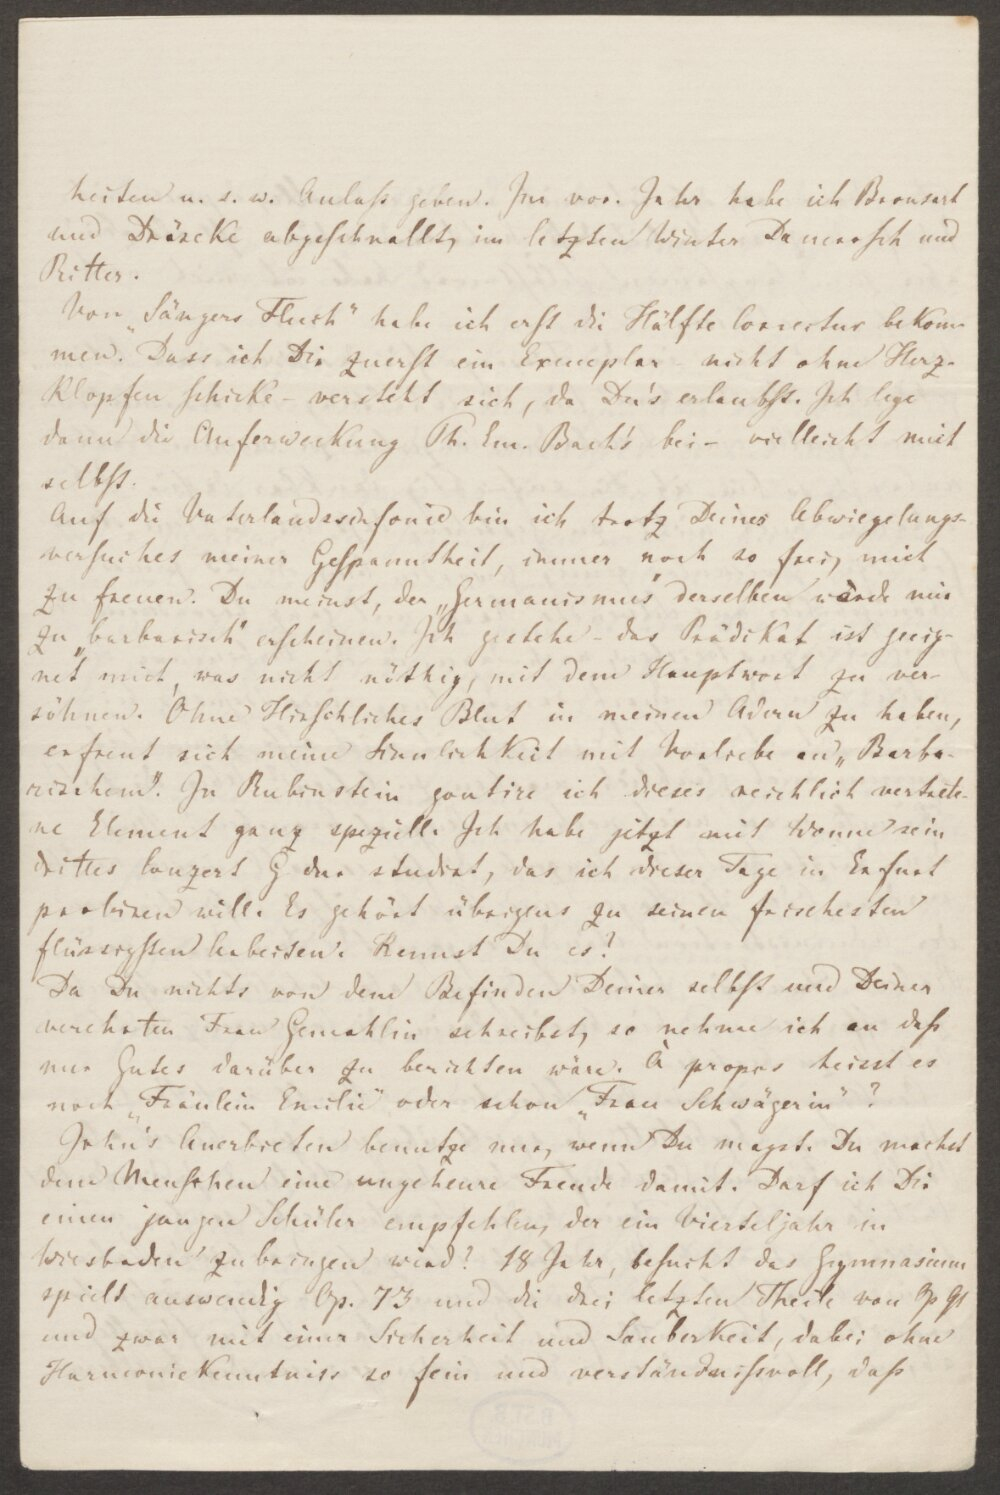 heiten u. s. w. Anlaß geben. Im vor. Jahr habe ich Bronsart
und Dräseke abgeschnallt, im letzten Winter Damrosch und
Ritter.
Von „Sängers Fluch" habe ich erst die Hälfte Correctur bekom-
men. Dass ich Dir zuerst ein Exemplar nicht ohne Herz-
klopfen schicke – versteht sich, da Du's erlaubst. Ich lege
dann die Auferweckung Ph. Em. Bach's bei – vielleicht mich
selbst.
Auf die Vaterlandssinfonie bin ich trotz Deines Abwiegelungs-
versuches meiner Gespanntheit, immer noch so frei, mich
zu freuen. Du meinst, der „Germanismus" derselben würde mir
zu „barbarisch" erscheinen. Ich gestehe – das Prädikat ist geeig-
net mich, was nicht nöthig, mit dem Hauptwort zu ver-
söhnen. Ohne Hirschliches Blut in meinen Adern zu haben,
erfreut sich meine Sinnlichkeit mit Vorliebe an „Barba-
rischem". In Rubinstein goutire ich dieses reichlich vertrete-
ne Element ganz speziell. Ich habe jetzt mit Wonne sein
drittes Conzert G dur studirt, das ich dieser Tage in Erfurt
probiren will. Es gehört übrigens zu seinen frischesten
flüssigsten Arbeiten. Kennst Du es?
Da Du nichts von dem Befinden Deiner selbst und Deiner
verehrten Frau Gemahlin schreibst, so nehme ich an daß
nur Gutes darüber zu berichten wäre. À propos heisst es
noch „Fräulein Emilie" oder schon „Frau Schwägerin"?
John's Anerbieten benutze nur, wenn Du magst. Du machst
dem Menschen eine ungeheure Freude damit. Darf ich Dir
einen jungen Schüler empfehlen, der ein Vierteljahr in
Wiesbaden zubringen wird? 18 Jahr, besucht das Gymnasium
spielt auswendig Op. 73 und die drei letzten Theile von Op 91
und zwar mit einer Sicherheit und Sauberkeit, dabei ohne
Harmoniekenntniss so fein und verständnißvoll, daß